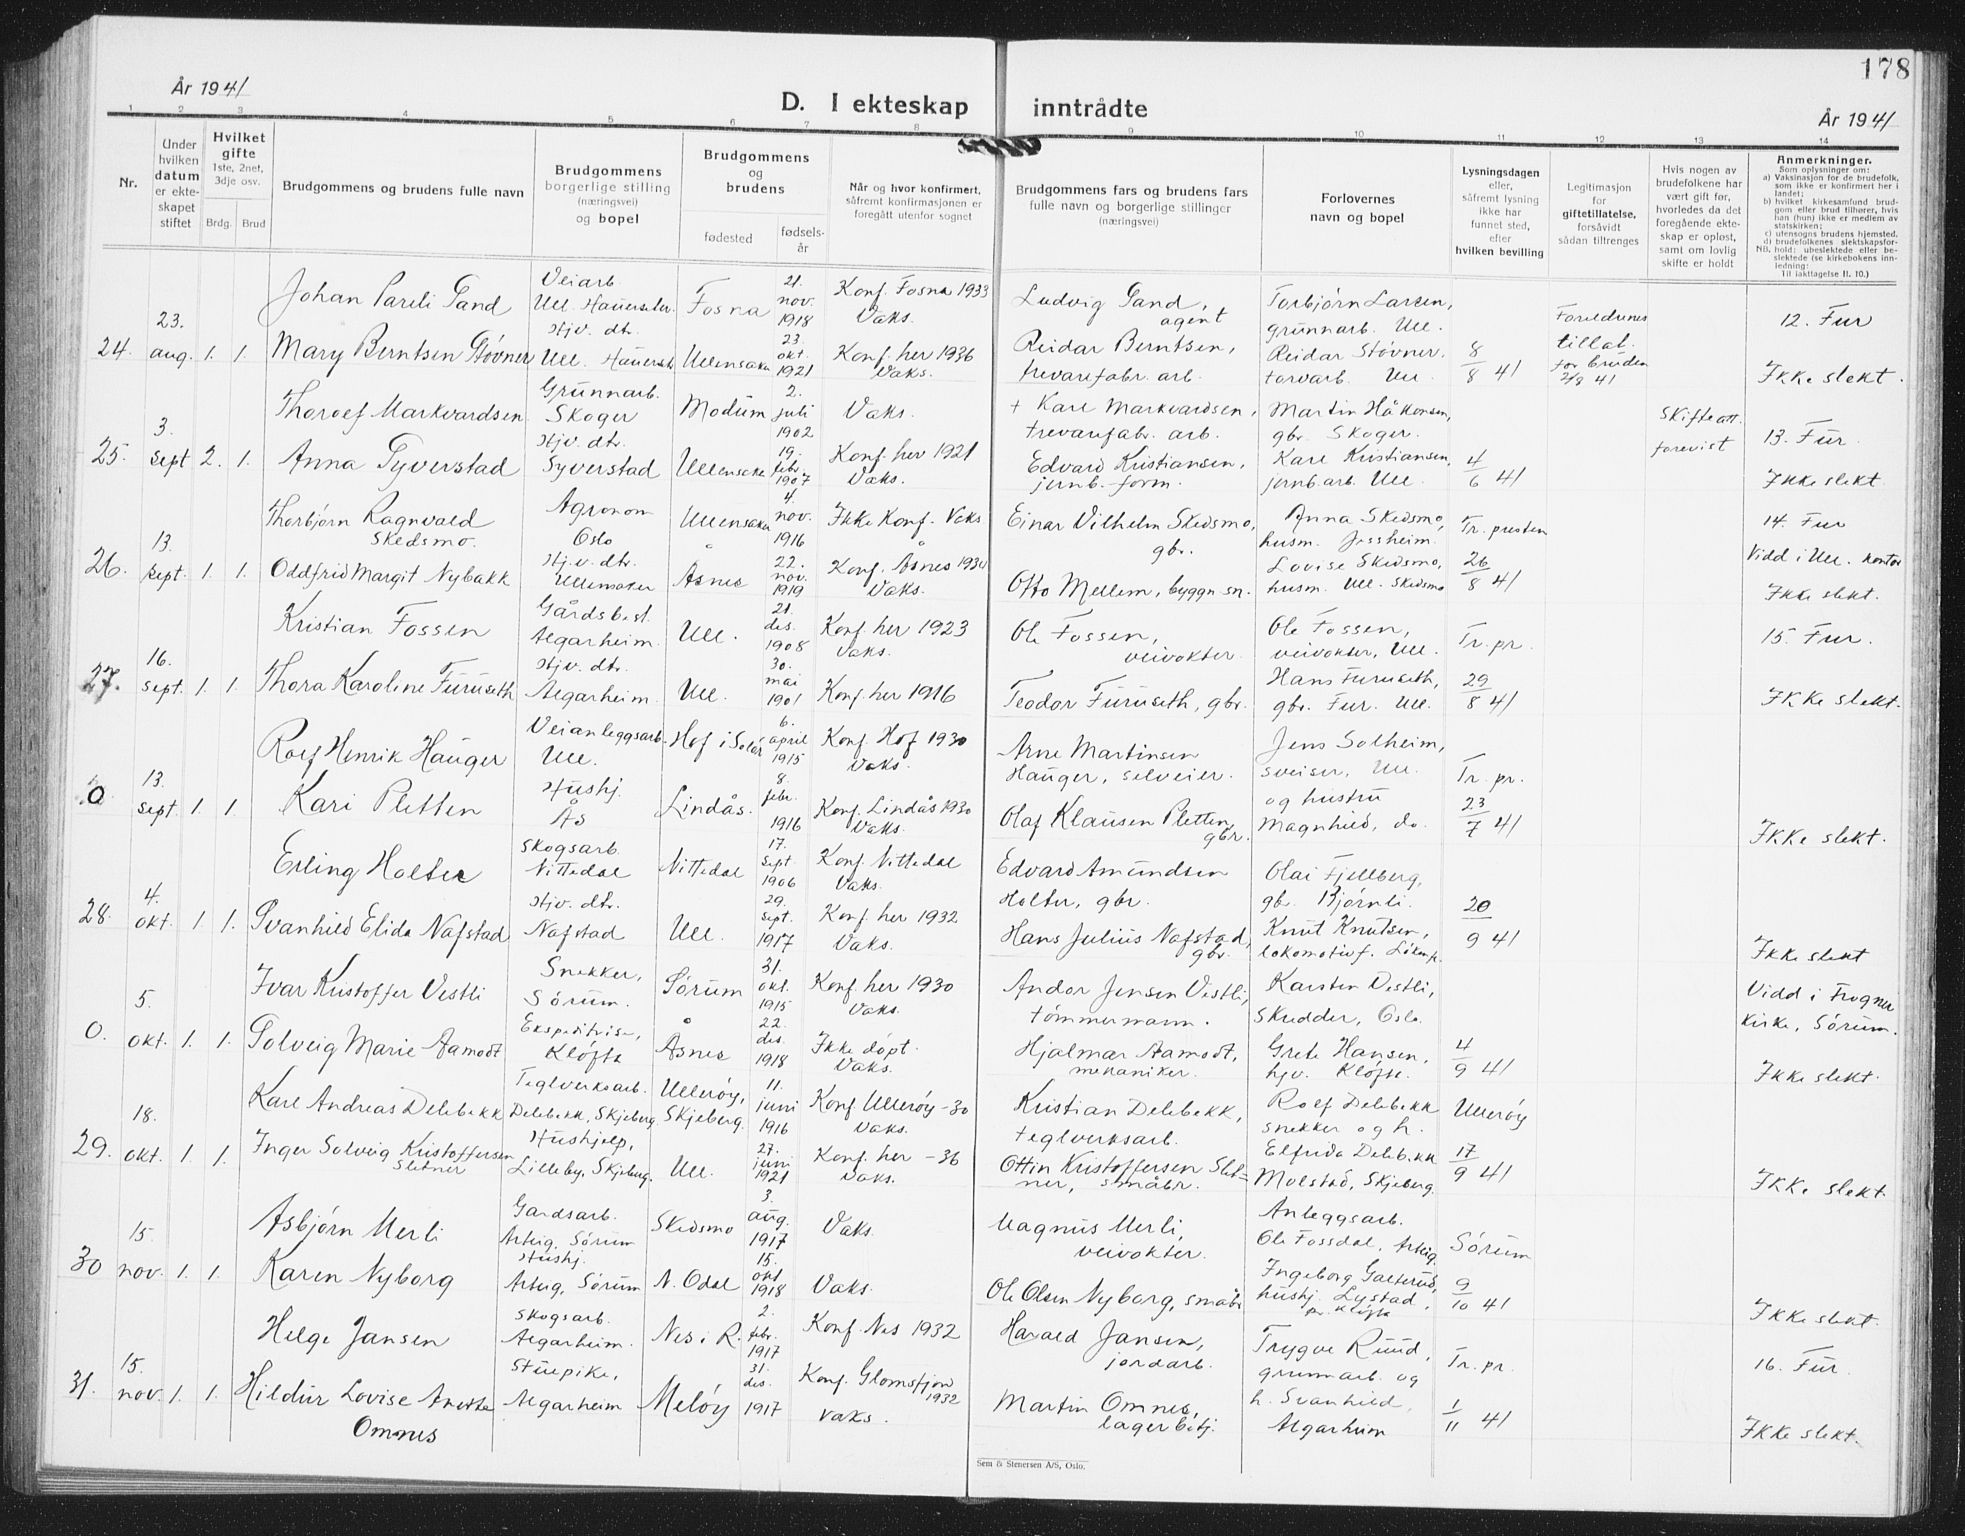 178
År 1941
D. I ekteskap inntrådte
År 1941
1 2 3 4 5 6 7 8 9 10 11 12 13 14
Nr.
Under hvilken datum er ekteskapet stiftet
Hvilket gifte
1ste, 2net, 3dje osv.
Brdg. Brud
Brudgommens og brudens fulle navn
Brudgommens borgerlige stilling (næringsvei) og bopel
Brudgommens og brudens
fødested
fødselsår
Når og hvor konfirmert, såfremt konfirmasjonen er foregått utenfor sognet
Brudgommens fars og brudens fars fulle navn og borgerlige stillinger (næringsvei)
Forlovernes navn og bopel
Lysningsdagen eller, såfremt lysning ikke har funnet sted, efter hvilken bevilling
Legitimasjon for giftetillatelse, forsåvidt sådan tiltrenges
Hvis nogen av brudefolkene har vært gift før, hvorledes da det foregående ekteskap er opløst, samt om lovlig skifte er holdt
Anmerkninger.
Som oplysninger om:
a) Vaksinasjon for de brudefolk, som ikke er konfirmert her i landet;
b) hvilket kirkesamfund brudgom eller brud tilhører, hvis han (hun) ikke er medlem av statskirken;
c) utensogns brudens hjemsted,
d) brudefolkenes slektskapsforhold; ubeslektede eller beslektede (se kirkebokens innledning:
NB. Til iakttagelse II. 10.)
24. 23. aug. 1. 1.
Johan Pareli Sand Veiarb. Ull. Hauerseter Fosna 21. nov. 1918 Konf. Fosna 1933 Vaks. Ludvig Sand, agent Torbjørn Larsen, grunnarb. Ull. Foreldrenes tillat. for bruden 2/8 41 12. Fur
Mary Berntsen Støvner Hjv. dtr. Ull. Hauerset. Ullensaker 23. okt. 1921 Konf. her 1936 Vaks. Reidar Berntsen, trevarefabr. arb. Reidar Støvner, torvarb. Ull. 8/8 41 Ikke slekt.
25. 3. sept 2. 1.
Thorolf Markvardsen Grunnarb. Skoger Modum 2. juli 1902 Vaks. + Karl Markvardsen, trevarefabr. arb. Martin Håkonsen, gbr. Skoger. Skifteatt. forevist 13. Fur.
Anna Syverstad Hjv. dtr. Syverstad Ullensaker 19. febr. 1907 Konf. her 1921 Vaks. Edvard Kristiansen, jernb. form. Karl Kristiansen, jernb. arb. Ull. 4/6 41 Ikke slekt
26. 13. sept. 1. 1.
Thorbjørn Ragnvald Skedsmo. Agronom Oslo Ullensaker 4. nov. 1916 Ikke Konf. Vaks Einar Vilhelm Skedsmo, gbr. Anna Skedsmo, husm. Jessheim. Tr. presten 14. Fur
Oddfrid Margit Nybakk Hj. v. dtr. Ullensaker Åsnes 22. nov. 1919 Konf. Åsnes 1934 Vaks. Otto Mellem, byggn. sn. Lovise Skedsmo, husm. Ull. Skedsmo 26/8 41 Vidd i Ull. kontor Ikke slekt.
27. 16. sept. 1. 1.
Kristian Fossen Gårdsbest. Algarheim. Ull. 21. des. 1908 Konf. her 1923 Vaks. Ole Fossen, veivokter. Ole Fossen, veivokter, Ull. Tr. pr. 15. Fur.
Thora Karoline Furuseth Hjv. dtr. Algarheim. Ull. 30. mai 1901 Konf. her 1916 Teodor Furuseth, gbr. Hans Furuseth, gbr. Fur. Ull. 29/8 41 Ikke slekt.
0 13. sept. 1. 1.
Rolf Henrik Hauger Veianleggsarb. Ull. Hof i Solør 6. april 1915 Konf. Hof 1930 Vaks. Arne Martinsen Hauger, selveier. Jens Solheim, sveiser, Ull. Tr. pr.
Kari Pletten Hushj. Ås Lindås. 8. febr. 1916 Konf. Lindås 1930 Vaks. Olaf Klausen Pletten, gbr. og hustru Magnhild, do. 23/7 41 Ikke slekt.
28. 4. okt. 1. 1.
Erling Holter Skogsarb. Nittedal Nittedal 17. sept. 1906 Konf. Nittedal Vaks. Edvard Amundsen Holter, gbr. Olai Fjellberg, gbr. Bjørnli.
Svanhild Elida Nafstad Hjv. dtr. Nafstad Ull. 29. sept. 1917 Konf. her 1932 Vaks. Hans Julius Nafstad, gbr. Knut Knutsen, lokomotivf. 20/9 41 Ikke slekt
0. 5. okt. 1. 1.
Ivar Kristoffer Vestli Snekker, Sørum. Sørum 31. okt. 1915 Konf. her 1930 Vaks. Andor Jensen Vestli, tømmermann. Karsten Vestli, Skredder, Oslo. Vidd i Frogner kirke, Sørum.
Solveig Marie Aamodt Ekspeditrise, Kløfta Åsnes 22. des. 1918 Ikke døpt. Vaks. Hjalmar Aamodt, mekaniker. Grete Hansen, hjv. Kløfta. 4/9 41 Ikke slekt.
29. 18. okt. 1. 1.
Karl Andreas Delebekk Teglverksarb. Delebekk, Skjeberg Ullerøy, Skjeberg. 11. juni 1916 Konf Ullerøy -30 Vaks. Kristian Delebekk, teglverksarb. Rolf Delebekk snekker og h. Ullerøy
Inger Solveig Kristoffersen Sletner Hushjelp, Lilleby, Skjeberg. Ull. 27. juni 1921 Konf. her -36 Vaks. Ottin Kristoffersen Sletner, småbr. Elfrida Delebekk Molstad, Skjeberg. 17/9 41 Ikke slekt.
30 15. nov. 1. 1.
Asbjørn Merli Gardsarb. Arteig, Sørum Skedsmo 3. aug. 1917 Vaks. Magnus Merli, veivokter. Anleggsarb. Ole Fossdal, Arteig. Sørum
Karen Nyborg Hushj. Arteig, Sørum N. Odal 15. okt 1918 Vaks. Ole Olsen Nyborg, småbr Ingeborg Galterud, hushj. Lystad, pr. Kløfta 9/10 41 Ikke slekt.
31. 15. nov. 1. 1.
Helge Jansen Skogsarb. Algarheim. Nes i R. 2. febr. 1917 Konf. Nes 1932 Harald Jansen, jordarb. Trygve Ruud, grunnarb. og Tr. pr. 16. Fur
Hildur Lovise Anette Omnes Stuepike, Algarheim Meløy 31. des. 1917 Konf. Glomfjord 1932 vaks. Martin Omnes, lagerbetj. h. Svanhild, Algarheim 1/11 41 Ikke slekt.
Sem & Stenersen A/S, Oslo.